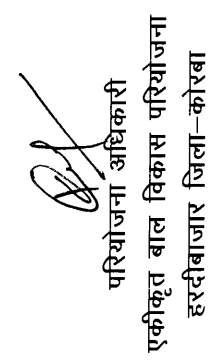 परियोजना अधिकारी
एकीकृत बाल विकास परियोजना
हरदीबाजार जिला–कोरबा